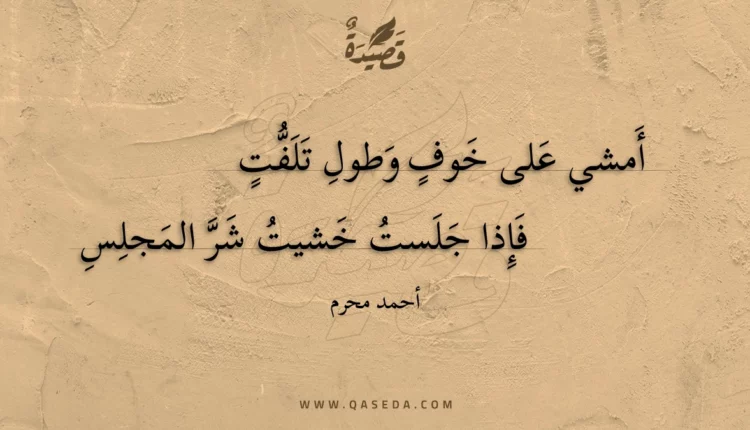 قَصِيْدَةٌ
أَمشي عَلى خَوفٍ وَطولِ تَلَفُّتٍ
فَإِذا جَلَستُ خَشيتُ شَرَّ المَجلِسِ
أحمد محرم
WWW.QASEDA.COM